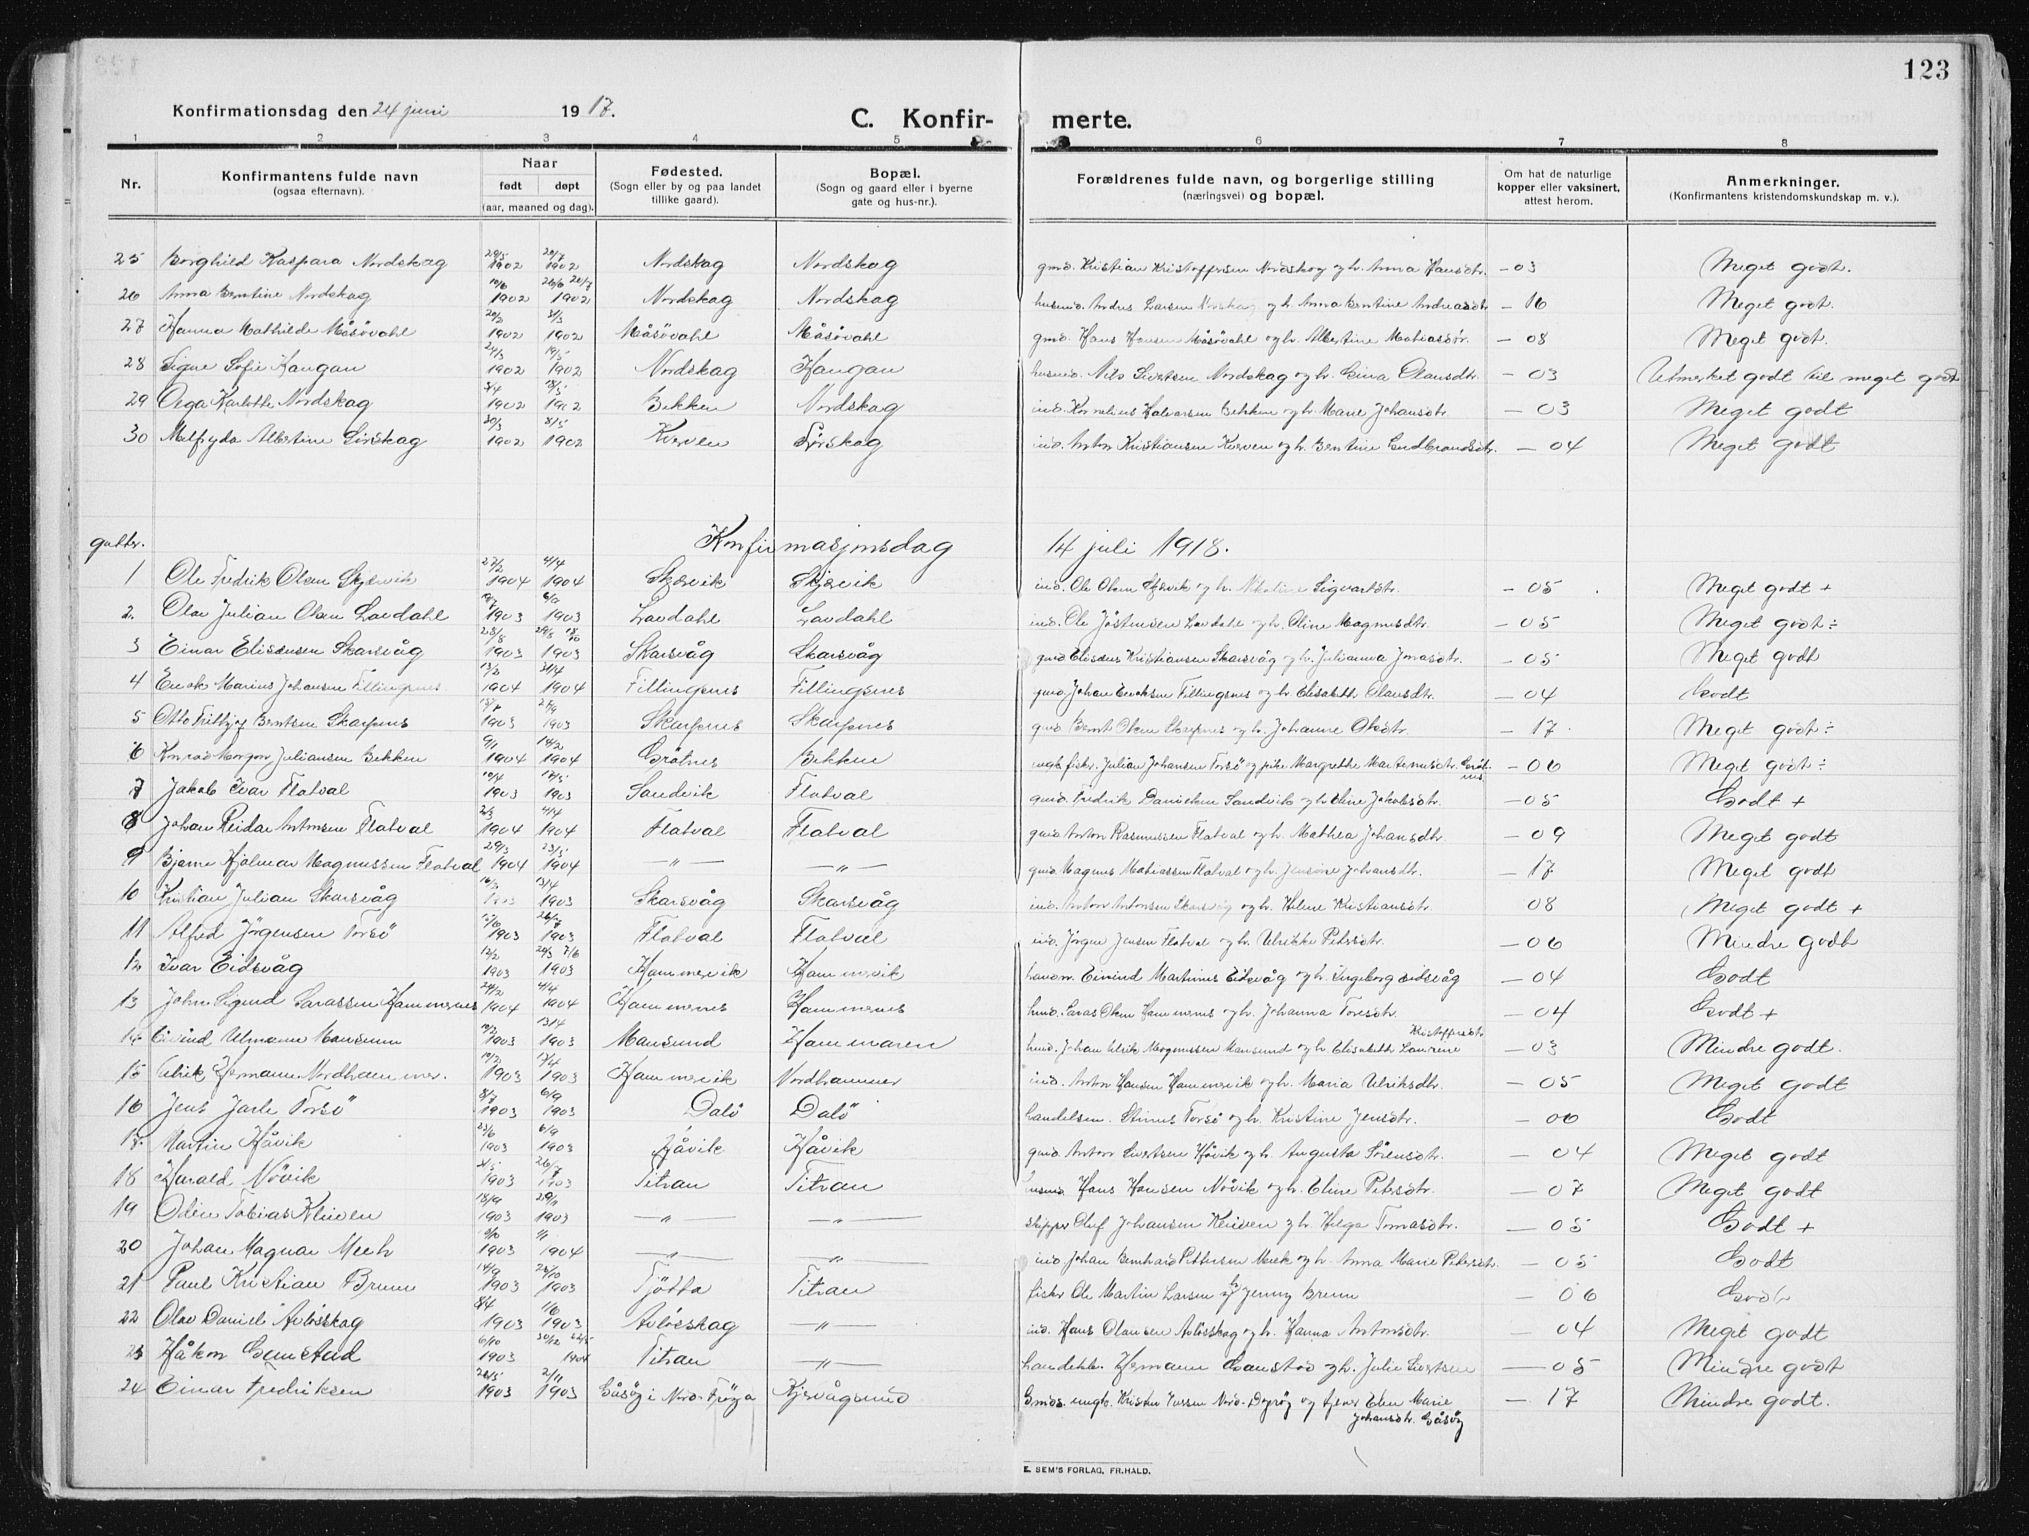 123
Konfirmationsdag den 24 juni 1917.
C. Konfir- merte.
1 2 3 4 5 6 7 8
Nr. Konfirmantens fulde navn (ogsaa efternavn). Naar født døpt (aar, maaned og dag). Fødested. (Sogn eller by og paa landet tillike gaard). Bopæl. (Sogn og gaard eller i byerne gate og hus-nr.). Forældrenes fulde navn, og borgerlige stilling (næringsvei) og bopæl. Om hat de naturlige kopper eller vaksinert, attest herom. Anmerkninger. (Konfirmantens kristendomskundskap m. v.).
25 Borghild Kaspara Nordskag 29/5 1902 20/7 1902 Nordskag Nordskag gmd. Kristian Kristoffersen Nordskag og h. Anna Hansdtr. - 03 Meget godt.
26 Anna Bentine Nordskag 1902 1902 Nordskag Nordskag husmd. Andres Larsen Nordskag og h. Anna Bentine Andreasdtr - 16 Meget godt.
27 Hanna Mathilde Måsøvahl 1902 1902 Måsøvahl Måsøvahl gmd. Hans Hansen Måsøvahl og h. Albertine Matiasdtr. - 08 Meget godt.
28 Signe Sofie Haugan 24/3 1902 19/5 1902 Nordskag Haugan husmd. Nils Sivertsen Nordskag og h. Lina Olausdtr. - 03 Utmerket godt til meget godt
29 Olga Karlotte Nordskag 8/4 1902 18/5 1902 Bekken Nordskag ind. Kornelius Halvorsen Bekken og h. Marie Johansdtr. - 03 Meget godt
30 Malfryda Albertine Sørskag 30/3 1902 8/5 1902 Kverven Sørskag ind. Anton Kristiansen Kverven og h. Bentine Gudbrandsdtr. - 04 Meget godt
Konfirmasjonsdag 14 juli 1918.
gutter.
1 Ole Fredrik Olsen Skjærvik 27/2 1904 4/4 1904 Skærvik Skjærvik ind. Ole Olsen Skærvik og h. Nikoline Sigvartdtr. - 05 Meget godt +
2. Olav Julian Olsen Lavdahl 1903 1903 Lavdahl Lavdahl ind. Ole Jöstensen Lavdahl og h. Oline Magnusdtr. - 05 Meget godt ÷
3 Einar Elisæusen Skarsvåg 23/8 1903 1903 Skarsvåg Skarsvåg gmd Elisæus Kristiansen Skarsvåg og h. Julianna Jonasdtr. - 05 Meget godt
4 Enok Marius Johansen Fillingsnes 13/2 1904 31/4 1904 Fillingsnes Fillingsnes gmd. Johan Enoksen Fillingsnes og h. Elisabeth Olausdtr. - 04 Godt
5 Otto Fritjof Berntsen Skarpnes 1903 1903 Skarpnes Skarpnes gmd. Bernt Olsen Skarpnes og h. Johanne Olsdtr. - 17 Meget godt ÷
6 Konrad Morgan Juliansen Bekken 9/1 1904 14/2 1904 Gråtnes Bekken ungk. fisker. Julian Johansen Torsö og pike Margrethe Martinusdtr. Gråt-nes - 06 Meget godt ÷
7 Jakob Ivar Flatval 10/4 1903 1903 Sandvik Flatval gmd. Fredrik Danielsen Sandvik og h. Eline Jakobsdtr. - 05 Godt +
8 Johan Reidar Antonsen Flatval 2/3 1904 4/4 1904 Flatval Flatval gmd. Anton Rasmussen Flatval og h. Mathea Johansdtr. - 09 Meget godt
9 Bjarne Hjalmar Magnussen Flatval 29/3 1904 23/5 1904 — " — — " — gmd. Magnus Mathiassen Flatval og h. Jensine Johansdtr. - 17 Meget godt
10 Kristian Julian Skarsvåg 1903 13/4 1903 Skarsvåg Skarsvåg ind. Anton Antonsen Skarsvåg og h. Helene Kristiansdtr. 08 Meget godt +
11 Alfred Jörgensen Torsö 1903 1903 Flatval Flatval ind. Jörgen Jensen Flatval og h. Ulrikke Petersdtr. - 06 Mindre godt
12 Ivar Eidsvåg 12/2 1903 1903 Hammervik Hammervik handm. Eivind Martinus Eidsvåg og h. Ingeborg Eidsvåg - 04 Godt
13 John Sigurd Sarassen Hammernes 24/2 1904 4/4 1904 Hammernes Hammernes husmd. Saras Olsen Hammernes og h. Johanna Toresdtr. - 04 Godt +
14 Eivind Ulmann Mansund 1903 13/4 1903 Mausund Hammaren husmd. Johan Ulrik Magnussen Mausund og h. Elisabeth Laurense Kristoffersdtr. - 03 Mindre godt.
15 Ulrik Hermann Nordhammer. 1903 17/4 1903 Hammervik Nordhammer ind. Anton Hansen Hammervik og h. Maria Ulriksdtr. - 05 Meget godt
16 Jens Jarle Torsö 8/7 1903 6/9 1903 Dalö Dalö handelsm. Stinus Torsö og h. Kristine Jensdtr. - 00 Godt
17. Martin Håvik 23/6 1903 6/9 1903 Håvik Håvik gmd. Anton Sivertsen Håvik og h. Augusta Sörensdtr. - 04 Meget godt
18 Harald Növik 1903 26/7 1903 Titran Titran husmd. Hans Hansen Növik og h. Eline Petersdtr. - 07 Meget godt
19 Odin Tobias Kleiven 18/9 1903 29/11 1903 — " — — " — skipper Oluf Johansen Kleiven og h. Helga Tomasdtr. - 05 Godt +
20 Johan Magnar Meek 1903 1904 — " — — " — ind Johan Bernhard Pettersen Meek og h. Anna Marie Petersdtr. - 05 Godt
21 Paul Kristian Brun 14/9 1903 25/10 1903 Tjötta Titran fisker Ole Martin Larsen og fr. Jenny Brun - 06 Godt
22 Olav Daniels Avløsskag 8/4 1903 1/6 1903 Avløsskag — " — ind. Hans Olausen Avløsskag og h. Hanna Antonsdtr. - 04 Meget godt
23 Håkon Gaustad 6/10 1903 1904 Titran — " — handelsb. Hermann Gaustad og h. Julie Sivertsen - 05 Mindre godt
24 Einar Fredriksen 1903 2/11 1903 Gåsøy i Nord-Frøya Kjervågsund Gmds. ungk. Kristen Iversen Nord-Dyrøy og tjener Elen Marie Johansdtr. Gåsøy - 17 Mindre godt.
E. SEM'S FORLAG, FR.HALD.